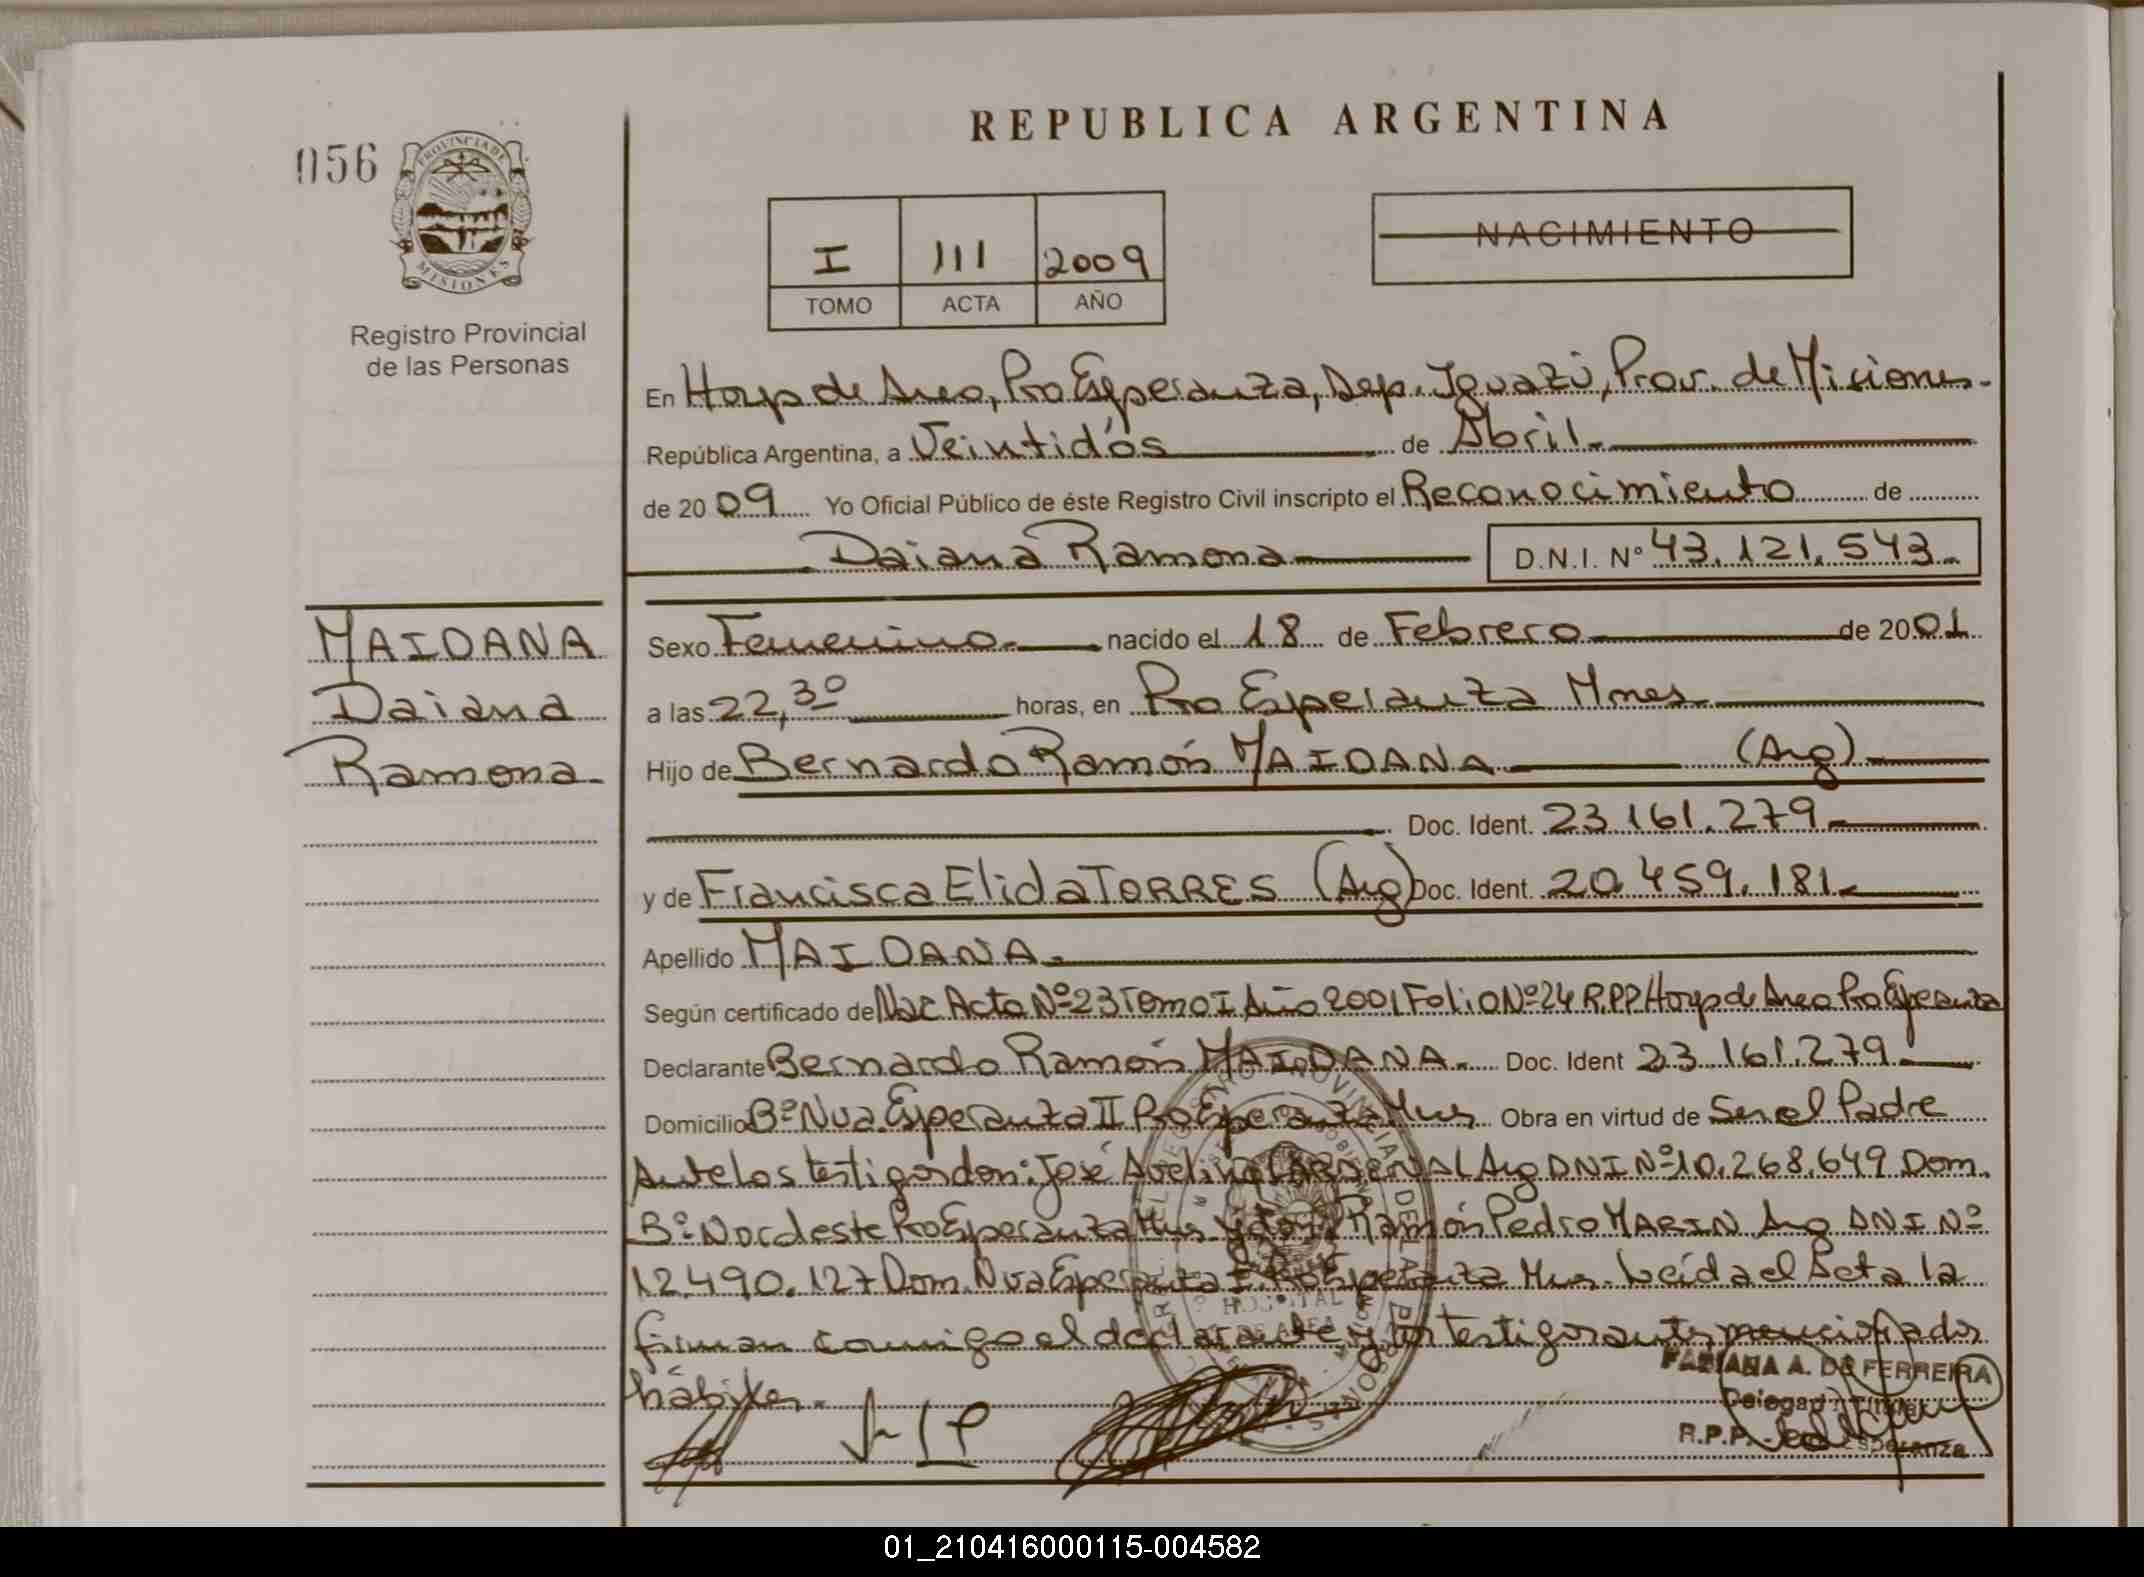 REPUBLICA ARGENTINA
056
PROVINCIA DE
MISIONES
Registro Provincial
de las Personas
I 111 2009
TOMO ACTA AÑO
NACIMIENTO
En Hosp de Area, Pto Esperanza, Dep. Iguazú, Prov. de Misiones.
República Argentina, a Veintidós de Abril.
de 2009 Yo Oficial Público de éste Registro Civil inscripto el Reconocimiento de
Daiana Ramona D.N.I. Nº 43.121.543.
MAIDANA
Daiana
Ramona
Sexo Femenino. nacido el 18 de Febrero de 2001
a las 22,30 horas, en Pto Esperanza Mnes
Hijo de Bernardo Ramón MAIDANA (Arg)
Doc. Ident. 23.161.279
y de Francisca Elida TORRES (Arg) Doc. Ident. 20.459.181
Apellido MAIDANA.
Según certificado de Nac Acta Nº 23 Tomo I Año 2001 Folio Nº 24 R.P.P Hosp de Area Pto Esperanza
Declarante Bernardo Ramón MAIDANA. Doc. Ident 23.161.279
Domicilio Bº Nva. Esperanza II Pto Esperanza Mns Obra en virtud de Ser el Padre
Ante los testigos don: José Avelino Arg DNI Nº 10.268.649 Dom.
Bº Nordeste Pto Esperanza Mns y don Ramón Pedro MARIN Arg DNI Nº
12.490.127 Dom. Nva Esperanza Pto Esperanza Mns. Leída el Acta la
firman conmigo el declarante y los testigos antes mencionados
hábiles.
FABIANA A. DE FERREIRA
R.P.P. Esperanza
01_210416000115-004582